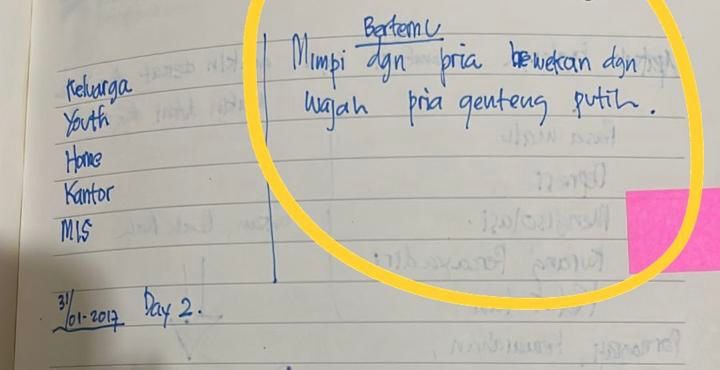 Keluarga
Youth
Home
Kantor
MIS
Bertemu
Mimpi dgn pria bewekan dgn
wajah pria genteng putih.
31/01-2017 Day 2.